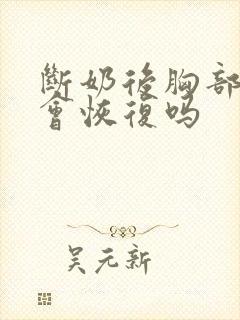 斷奶後胸部
會恢復吗
吴元新